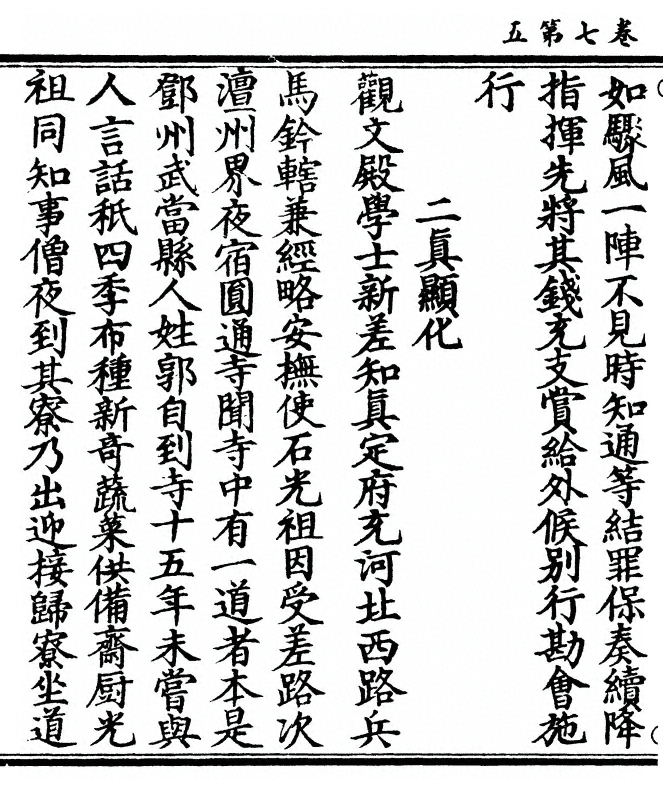 卷七第五
如驟風一陣不見時知通等結罪保奏續降
指揮先將其錢充支賞給外候別行勘會施
行
二眞顯化
觀文殿學士新差知眞定府充河北西路兵
馬鈐轄兼經略安撫使石光祖因受差路次
澶州界夜宿圓通寺聞寺中有一道者本是
鄧州武當縣人姓郭自到寺十五年未嘗與
人言話秖四季布種新奇蔬菜供備齋厨光
祖同知事僧夜到其寮乃出迎接歸寮坐道